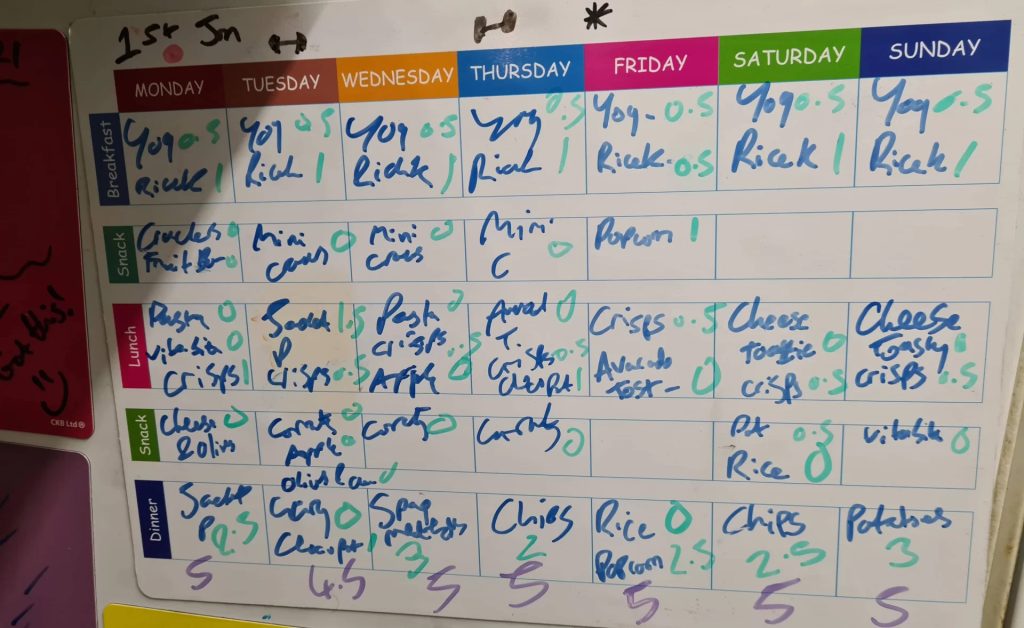 1st Jan
MONDAY TUESDAY WEDNESDAY THURSDAY FRIDAY SATURDAY SUNDAY
Breakfast
Yog 0.5
Ricek 1
Yog 0.5
Rick 1
Yog 0.5
Ricek 1
Yog 0.5
Rick 1
Yog. 0.5
Ricek. 0.5
Yog 0.5
Ricek 1
Yog 0.5
Ricek 1
Snack
Crackers 0
Fruit Bar 0
Mini 0
Mini 0
Mini
C 0
Popcorn 1
Lunch
Pasta 0
0
crisps 1
1.5
P
crisps 0.5
Pasta 0
crisps 0.5
Apple 0
0
T.
Crisps 0.5
1
Crisps 0.5
Avocado
Toast - 0
Cheese
0
crisps 0.5
Cheese
Toasty 0
crisps 0.5
Snack
Cheese 0
& Olives
Carrots 0
Apple 0
0
Carrots 0
Carrots 0
0.5
Rice 0
0
Dinner
P 2.5
Curry 0
1
Spag
meatballs
3
Chips
2
Rice 0
Popcorn 2.5
Chips
2.5
Potatoes
3
5 4.5 5 5 5 5 5
Got this!
CKB Ltd ®